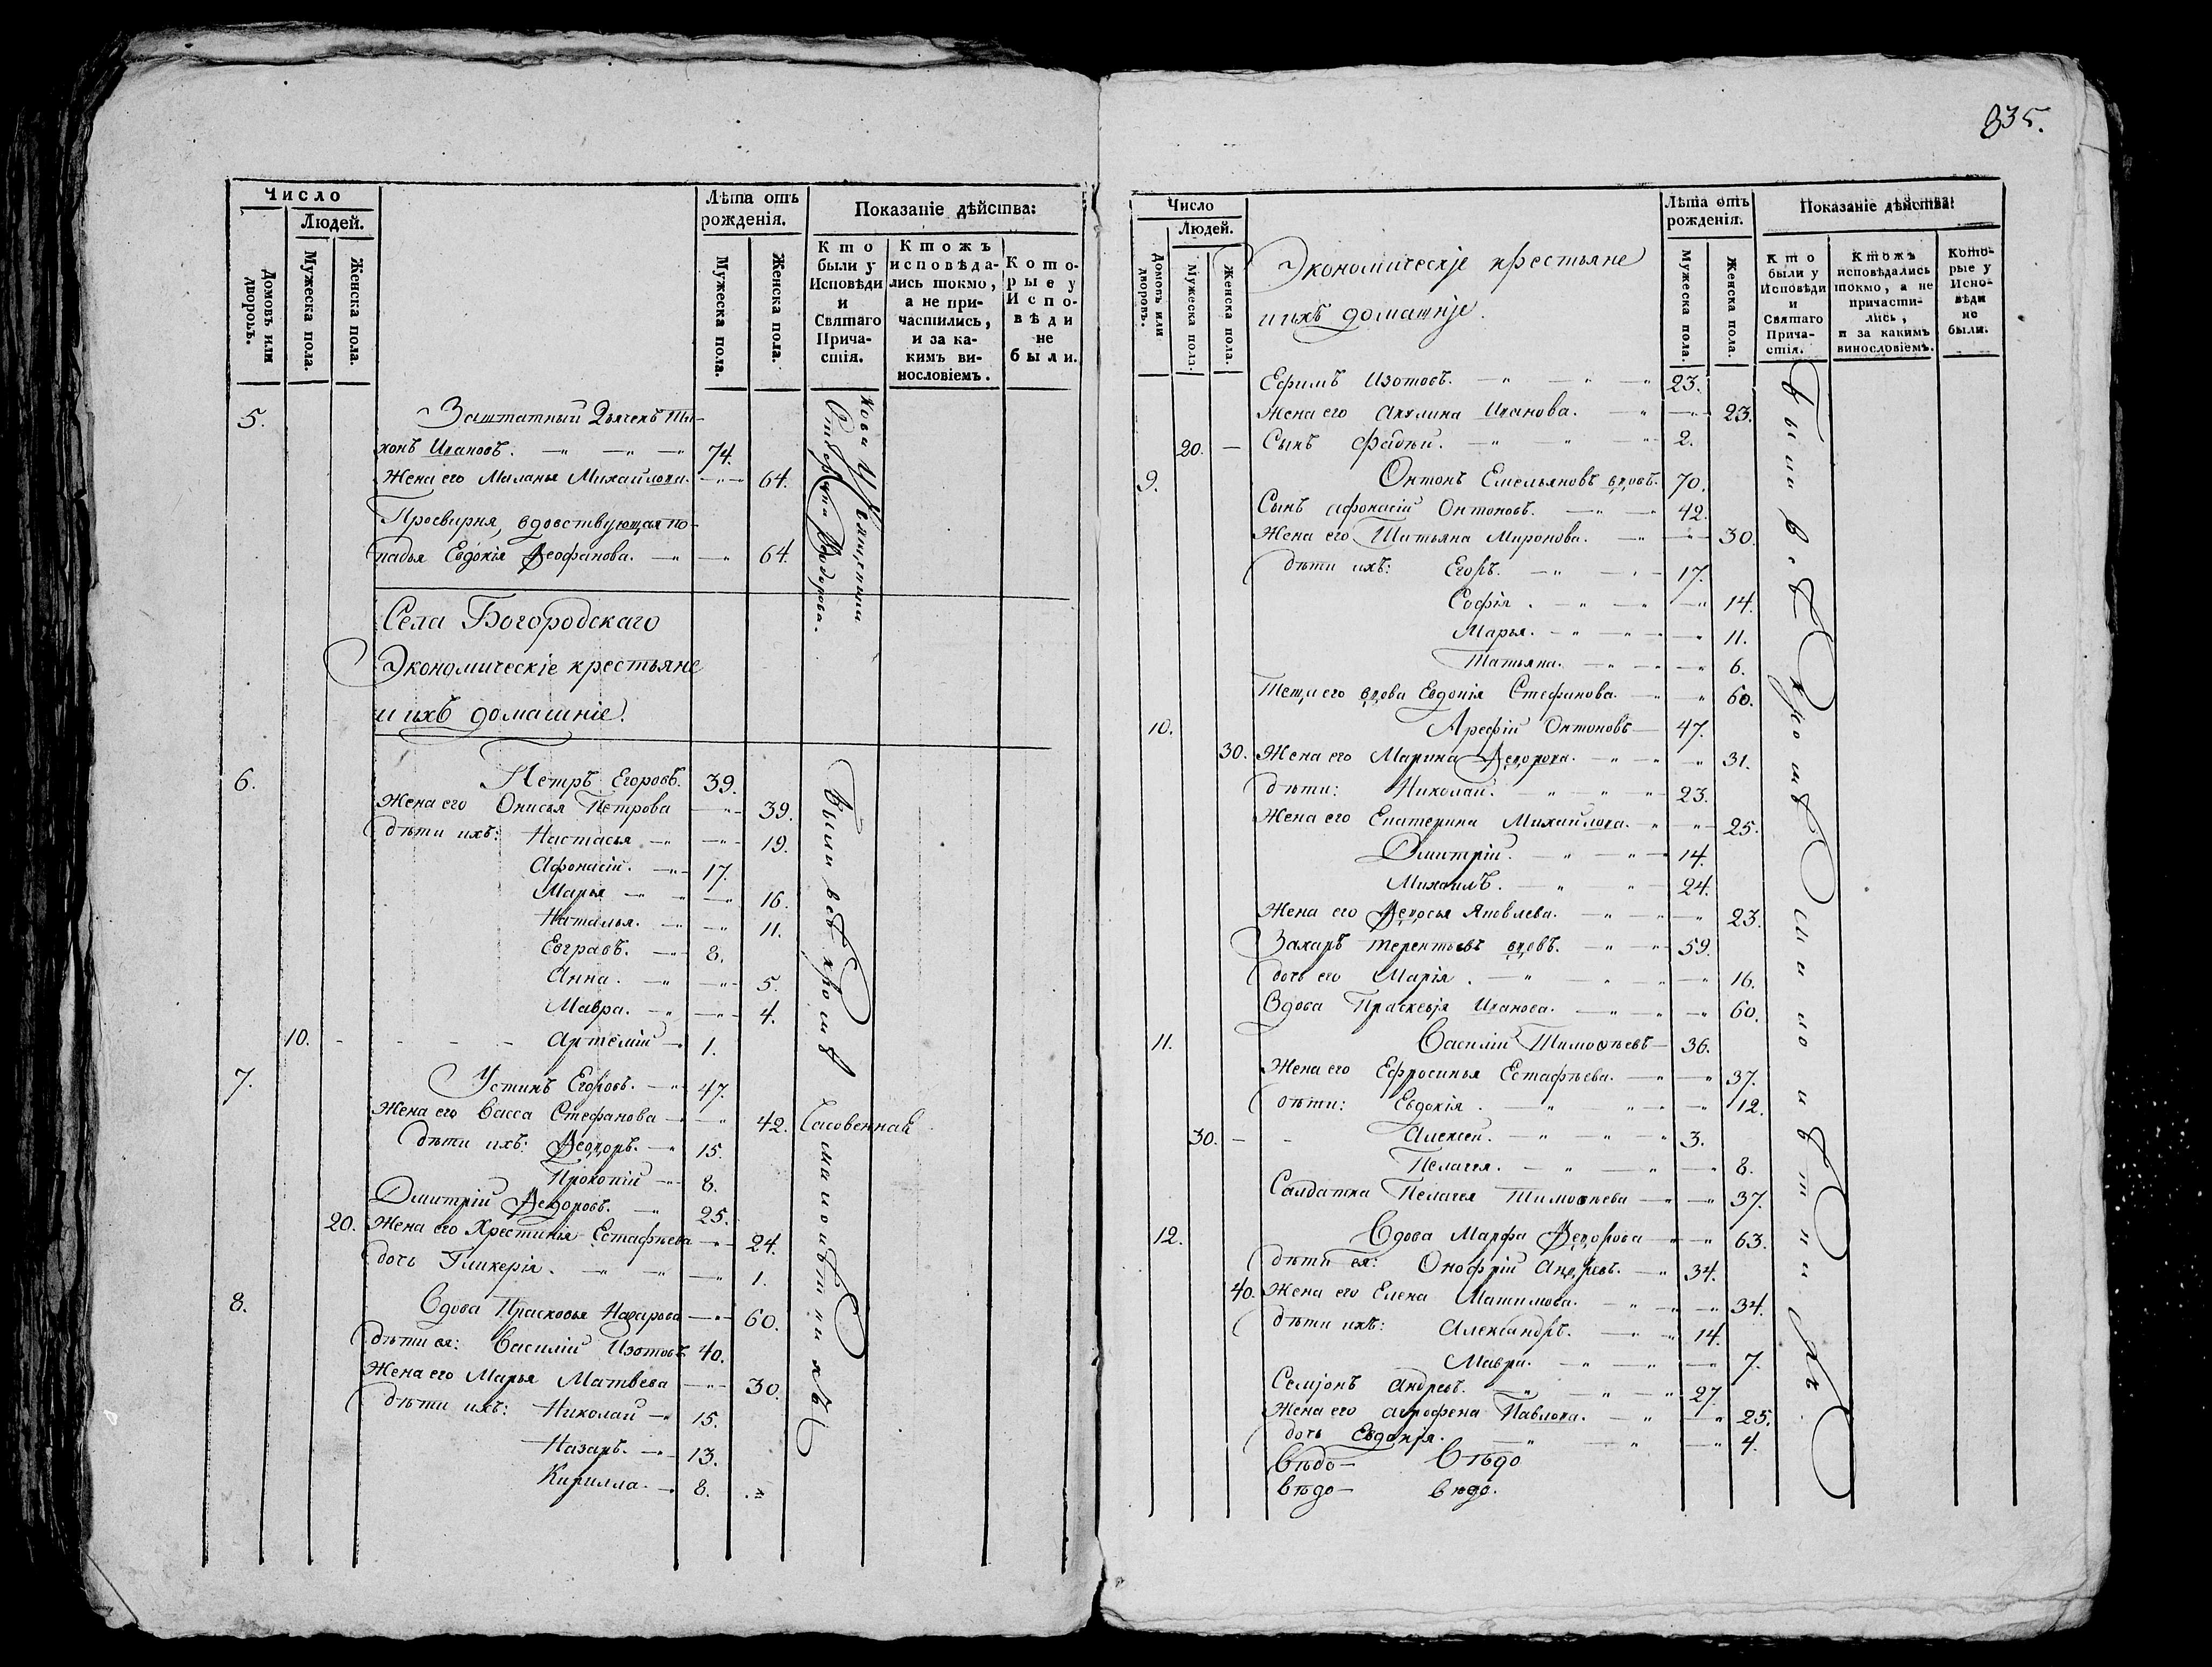 Число
Людей.
Домовъ или дворовъ.
Мужеска пола.
Женска пола.
Лѣта отъ рожденія.
Мужеска пола.
Женска пола.
Показаніе дѣйства:
Кто были у Исповѣди и Святаго Причастія.
Ктожъ исповѣдались токмо, а не причастились, и за какимъ винословіемъ.
Которые у Исповѣди не были.
5. Заштатный Дьячекъ Ти-
хонъ Ивановъ. 74.
Жена его Миланья Михайлова. 64.
Просвирня, вдовствующая по-
падья Евдокія Ѳеофанова. 64.
Села Богородскаго
Экономическіе крестьяне
и ихъ домашніе.
6. Петръ Егоровъ. 39.
Жена его Онисья Петрова 39.
дѣти ихъ: Настасья 19.
Афонасій. 17.
Марья 16.
Наталья. 11.
Евграфъ. 8.
Анна. 5.
Мавра. 4.
10. Артемій 1.
7. Устинъ Егоровъ. 47.
Жена его Васса Стефанова 42.
дѣти ихъ: Ѳеодоръ. 15.
Прокопій 8.
Дмитрій Ѳедоровъ. 25.
20. Жена его Хрестинія Естафѣева 24.
дочь Гликерія. 1.
8. Вдова Прасковья Назарова 60.
дѣти ея: Василій Изотовъ 40.
Жена его Марья Матвѣева 30.
дѣти ихъ: Николай 15.
Назаръ. 13.
Кирилла. 8.
Были всѣ кромѣ
малолѣтнихъ
835.
Число
Людей.
Домовъ или дворовъ.
Мужеска пола.
Женска пола.
Экономическіе крестьяне
и ихъ домашніе.
Лѣта отъ рожденія.
Мужеска пола.
Женска пола.
Показаніе дѣйства:
Кто были у Исповѣди и Святаго Причастія.
Ктожъ исповѣдались токмо, а не причастились, и за какимъ винословіемъ.
Которые у Исповѣди не были.
Ефимъ Изотовъ. 23.
Жена его Акулина Иванова. 23.
20. Сынъ 2.
9. Онтонъ Емельяновъ вдовъ. 70.
Сынъ Афонасій Онтоновъ. 42.
Жена его Татьяна Миронова. 30.
дѣти ихъ: Егоръ. 17.
Софія. 14.
Марья. 11.
Татьяна. 6.
Теща его вдова Евдокія Стефанова. 60.
10. Арефій Онтоновъ 47.
30. Жена его Марина Ѳедорова. 31.
дѣти: Николай. 23.
Жена его Екатерина Михайлова. 25.
Дмитрій. 14.
Михаилъ. 24.
Жена его Ѳедосья Яковлева. 23.
Захаръ Терентьевъ вдовъ. 59.
дочь его Марія. 16.
Вдова Праскевія Иванова. 60.
11. Василій Тимоѳѣевъ 36.
Жена его Ефросинья Естафѣева. 37.
дѣти: Евдокія. 12.
30. Алексей. 3.
Пелагея. 8.
Салдатка Пелагея Тимоѳѣева 37.
12. Вдова Марфа Ѳедорова 63.
дѣти ея: Онофрій Андреевъ. 34.
40. Жена его Елена 34.
дѣти ихъ: Александръ. 14.
Мавра. 7.
Семіонъ Андреевъ. 27.
Жена его Агрофена Павлова. 25.
дочь Евдокія. 4.
Были всѣ кромѣ малолѣтнихъ.